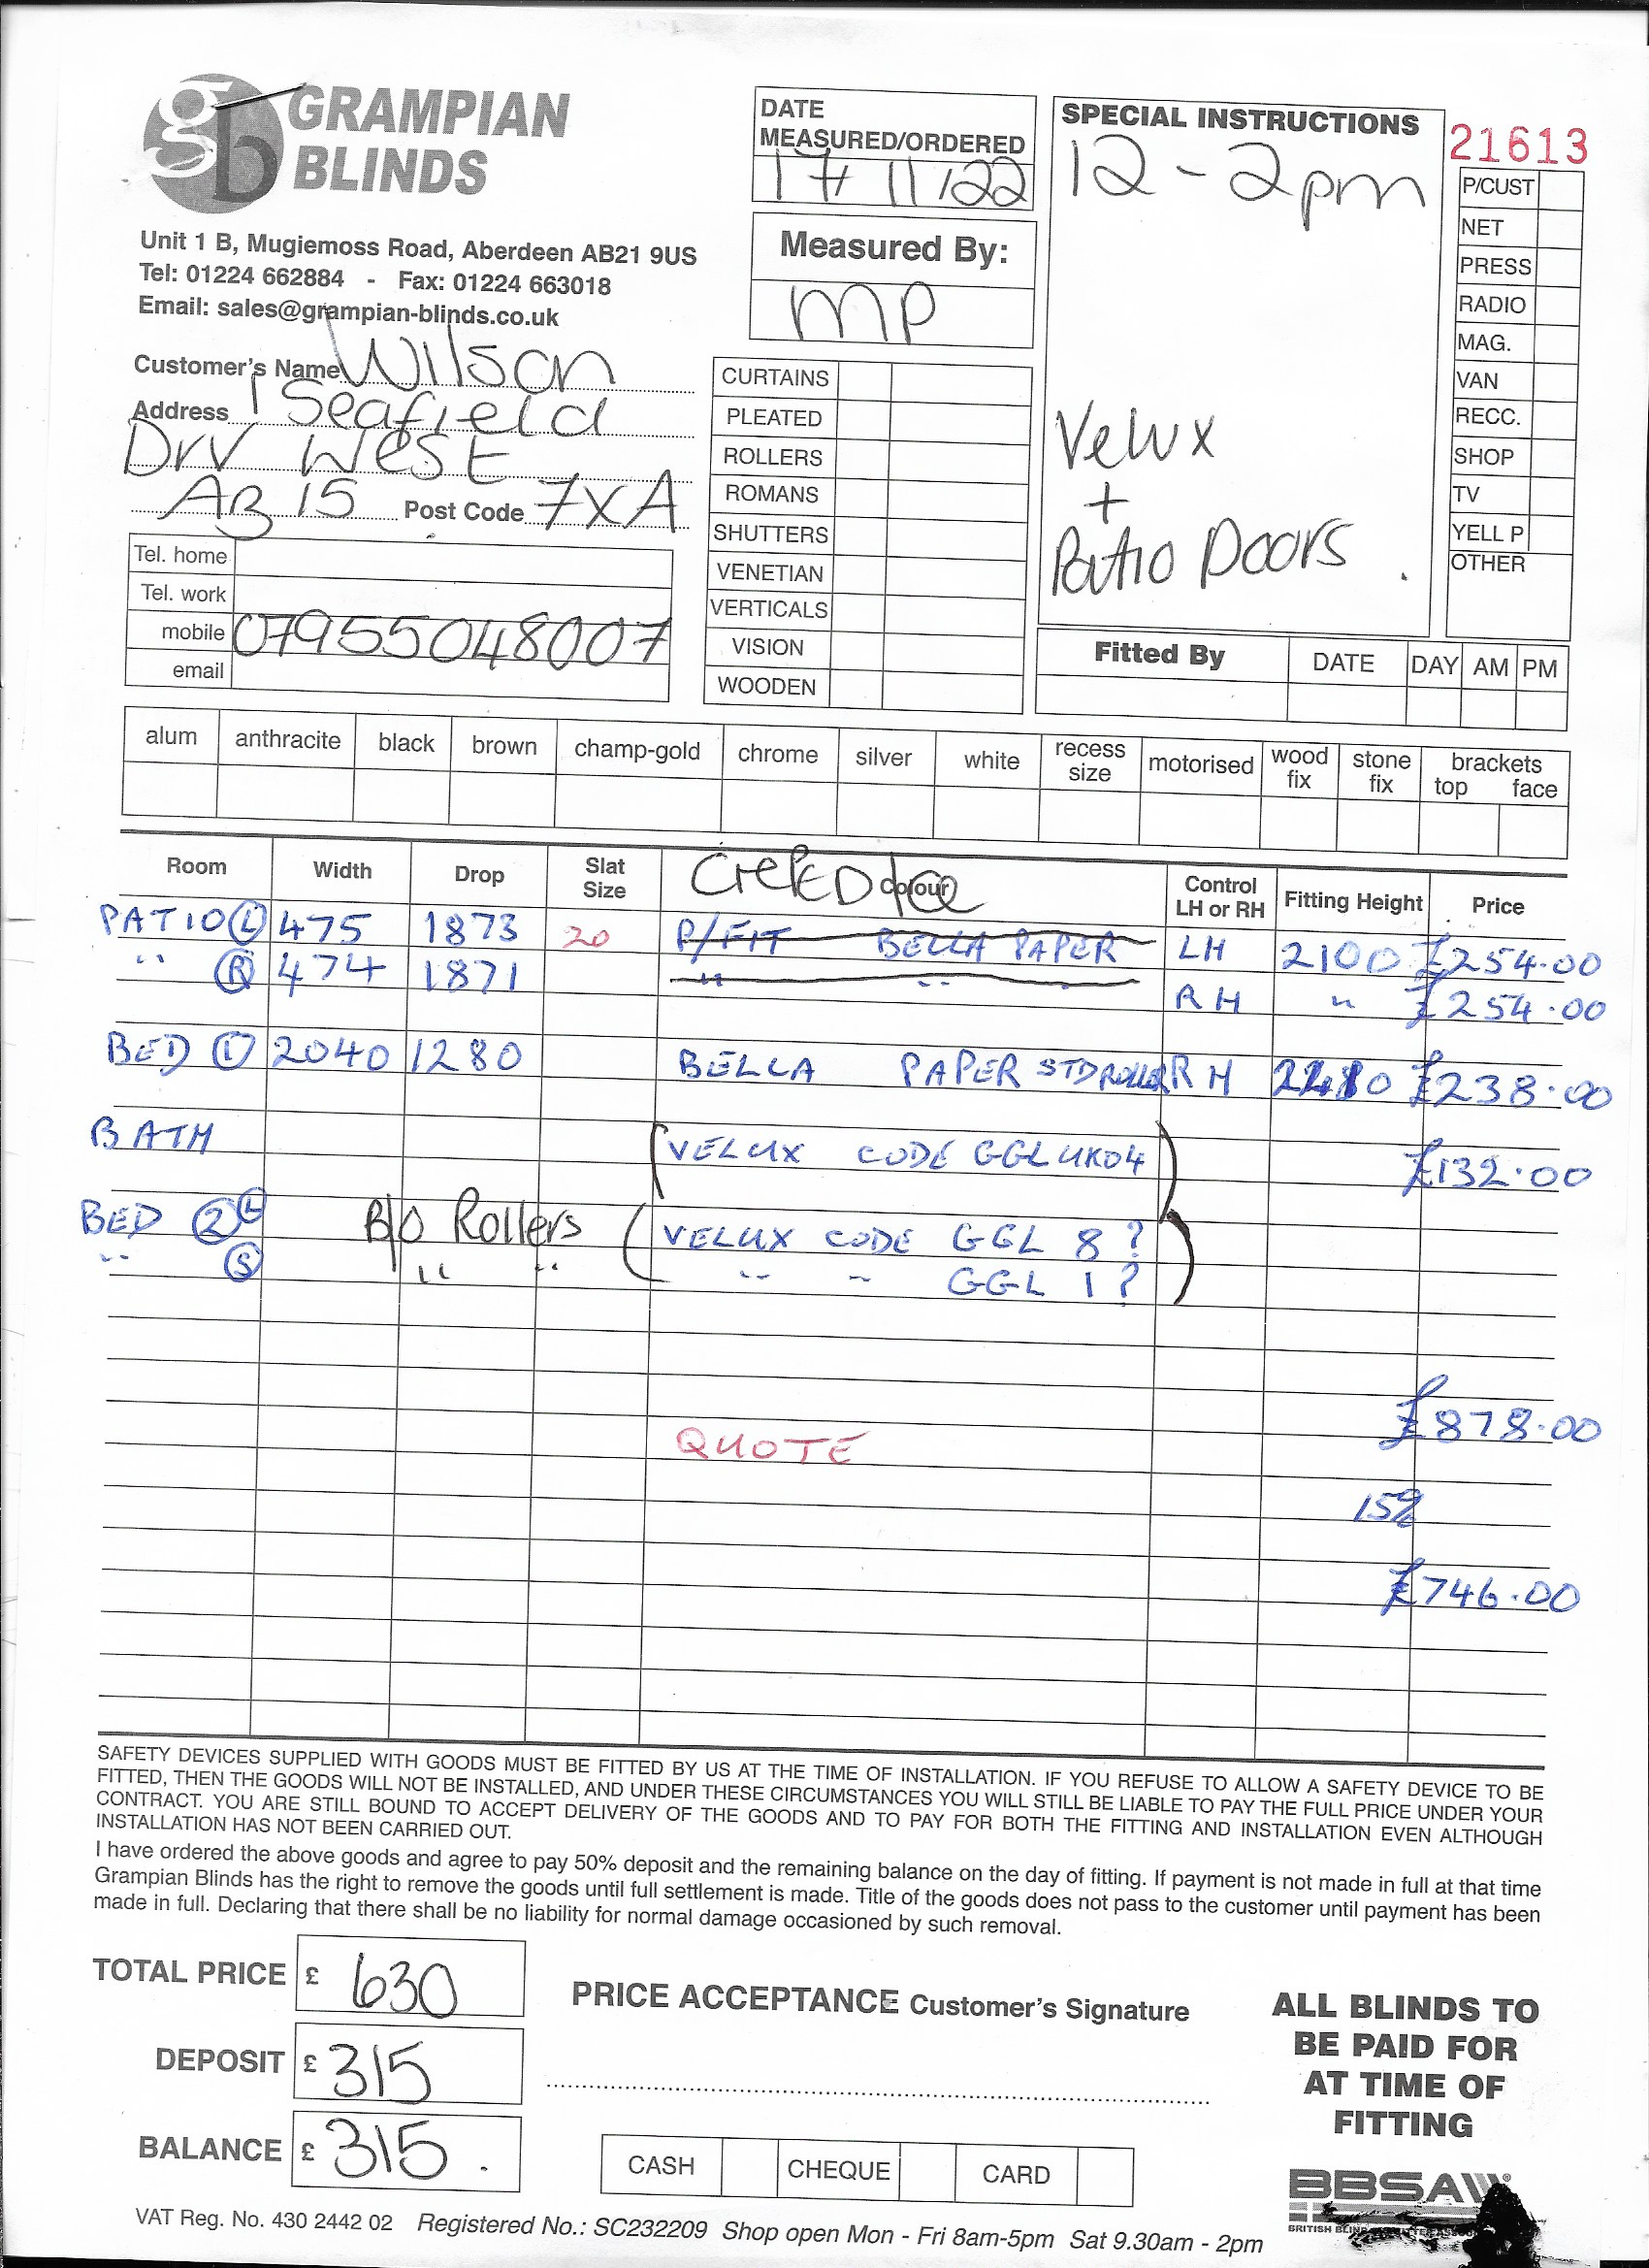 GRAMPIAN
BLINDS
Unit 1 B, Mugiemoss Road, Aberdeen AB21 9US
Tel: 01224 662884 - Fax: 01224 663018
Email: sales@grampian-blinds.co.uk
DATE
MEASURED/ORDERED
17/11/22
Measured By:
MP
SPECIAL INSTRUCTIONS
12 - 2pm
Velux
+
Patio Doors.
21613
P/CUST
NET
PRESS
RADIO
MAG.
VAN
RECC.
SHOP
TV
YELL P
OTHER
Customer's Name Wilson
Address 1 Seafield
Drv West
AB 15 Post Code 7XA
Tel. home
Tel. work
mobile 07955048007
email
CURTAINS
PLEATED
ROLLERS
ROMANS
SHUTTERS
VENETIAN
VERTICALS
VISION
WOODEN
Fitted By DATE DAY AM PM
alum anthracite black brown champ-gold chrome silver white recess size motorised wood fix stone fix brackets top face
Room Width Drop Slat Size colour Control LH or RH Fitting Height Price
PATIO (L) 475 1873 20 P/FIT BELLA PAPER LH 2100 £254.00
" (R) 474 1871 " " RH " £254.00
BED (1) 2040 1280 BELLA PAPER STD ROLLER RH £238.00
BATH VELUX CODE GGL UK04 £132.00
BED (2) (L) B/O Rollers VELUX CODE GGL 8 ?
" (S) " " " " GGL 1 ?
£878.00
QUOTE
15%
£746.00
SAFETY DEVICES SUPPLIED WITH GOODS MUST BE FITTED BY US AT THE TIME OF INSTALLATION. IF YOU REFUSE TO ALLOW A SAFETY DEVICE TO BE
FITTED, THEN THE GOODS WILL NOT BE INSTALLED, AND UNDER THESE CIRCUMSTANCES YOU WILL STILL BE LIABLE TO PAY THE FULL PRICE UNDER YOUR
CONTRACT. YOU ARE STILL BOUND TO ACCEPT DELIVERY OF THE GOODS AND TO PAY FOR BOTH THE FITTING AND INSTALLATION EVEN ALTHOUGH
INSTALLATION HAS NOT BEEN CARRIED OUT.
I have ordered the above goods and agree to pay 50% deposit and the remaining balance on the day of fitting. If payment is not made in full at that time
Grampian Blinds has the right to remove the goods until full settlement is made. Title of the goods does not pass to the customer until payment has been
made in full. Declaring that there shall be no liability for normal damage occasioned by such removal.
TOTAL PRICE £ 630
DEPOSIT £ 315
BALANCE £ 315.
PRICE ACCEPTANCE Customer's Signature
CASH CHEQUE CARD
ALL BLINDS TO
BE PAID FOR
AT TIME OF
FITTING
BBSA
VAT Reg. No. 430 2442 02 Registered No.: SC232209 Shop open Mon - Fri 8am-5pm Sat 9.30am - 2pm